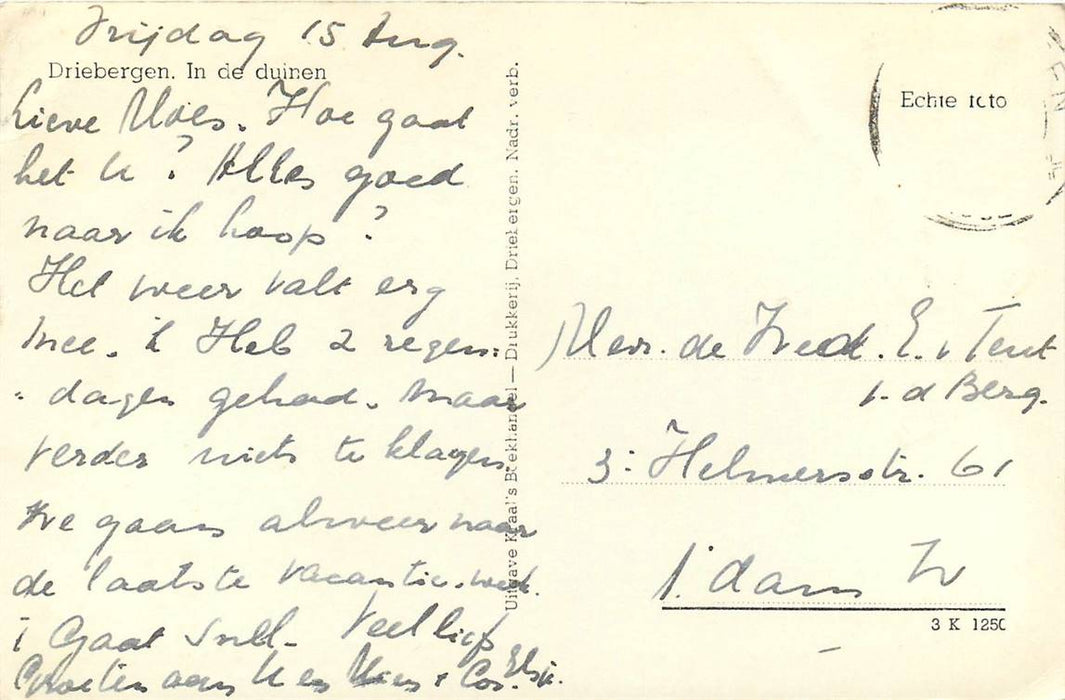 Vrijdag 15 Aug.
Driebergen. In de duinen
Lieve Moes. Hoe gaat
het U? Alles goed
naar ik hoop?
Het weer valt erg
mee. 'k Heb 2 regen:
: dagen gehad. Maar
verder niets te klagen.
We gaan alweer naar
de laatste vacantie. week.
't Gaat snel. Veel liefs
Groeten aan U en & Cor. Elsje.
Uitgave Kraal's Boekhandel — Drukkerij, Driebergen. Nadr. verb.
Echte foto
Mevr. de E. v Tent
v. d Berg.
3: Helmersstr. 61
A.dam W
3 K 1250